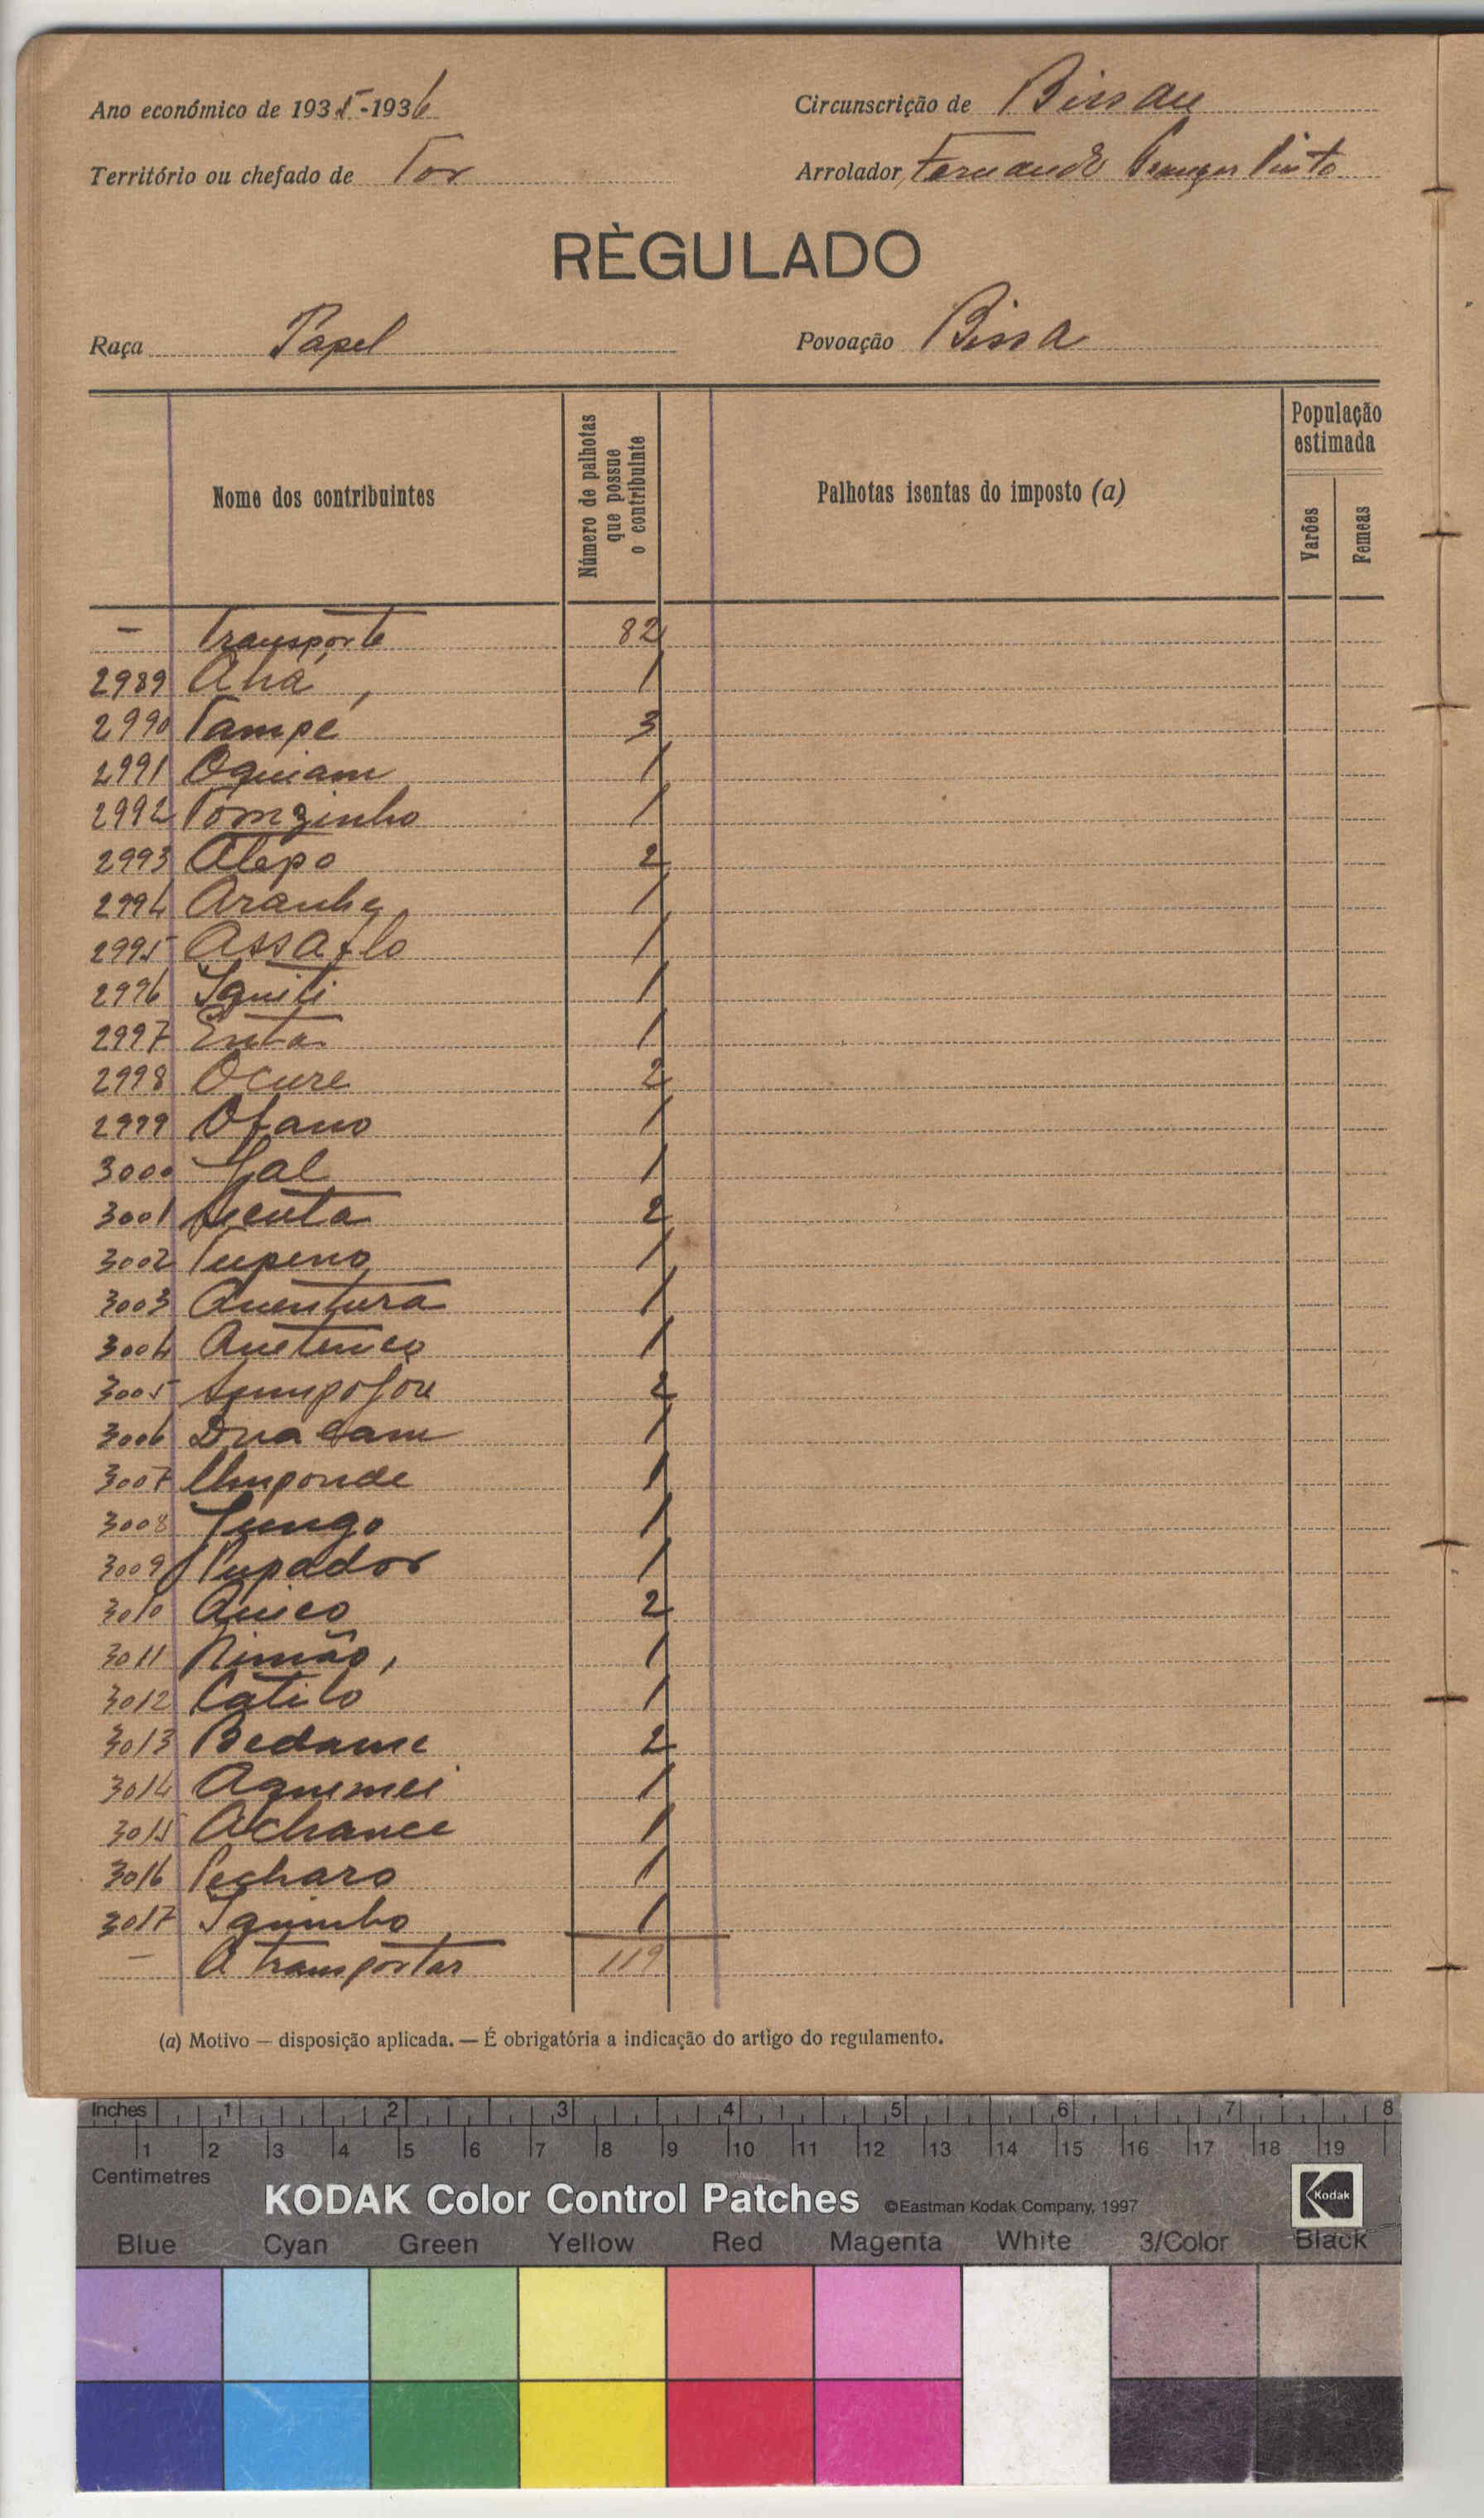 Ano económico de 1935-1936
Circunscrição de Bissau
Território ou chefado de Tor
Arrolador Fernando Pinto
RÈGULADO
Raça Papel
Povoação Bissa
Nome dos contribuintes
Número de palhotas que possue o contribuinte
Palhotas isentas do imposto (a)
População estimada
Varões
Femeas
- Transporte 82
2989 Ahá, 1
2990 Tampé 3
2991 Oquiam 1
2992 Tomzinho 1
2993 Alepo 2
2994 Aranha 1
2995 Assaflo 1
2996 Iquiti 1
2997 Enta 1
2998 Ocure 2
2999 Ofano 1
3000 Gal 1
3001 2
3002 Tupeno 1
3003 Auentura 1
3004 1
3005 2
3006 1
3007 Umponde 1
3008 Jungo 1
3009 Pupador 1
3010 Quico 2
3011 Nimão, 1
3012 Catilo 1
3013 Bedame 2
3014 Aqumei 1
3015 Achance 1
3016 Pecharo 1
3017 Iquinho 1
- A transportar 119
(a) Motivo — disposição aplicada. — É obrigatória a indicação do artigo do regulamento.
Inches 1 2 3 4 5 6 7 8
1 2 3 4 5 6 7 8 9 10 11 12 13 14 15 16 17 18 19
Centimetres
KODAK Color Control Patches ©Eastman Kodak Company, 1997 Kodak
Blue Cyan Green Yellow Red Magenta White 3/Color Black